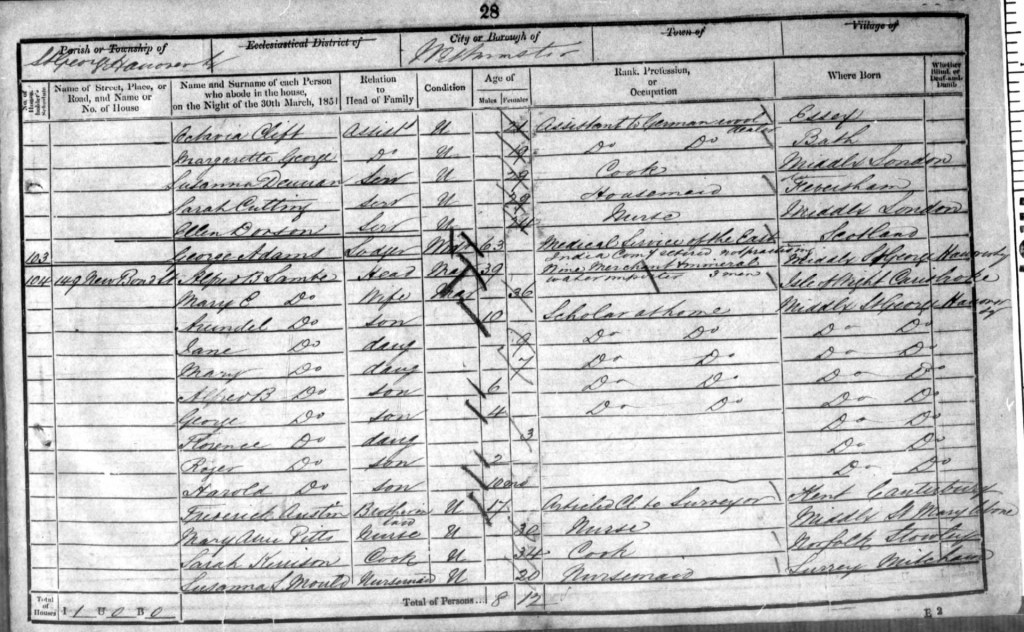 28
Parish or Township of Ecclesiastical District of City or Borough of Town of Village of
St George Hanover Sq Westminster
No. of House-holder's Schedule Name of Street, Place, or Road, and Name or No. of House Name and Surname of each Person who abode in the house, on the Night of the 30th March, 1851 Relation to Head of Family Condition Age of Males Females Rank, Profession, or Occupation Where Born Whether Blind, or Deaf-and-Dumb
Octavia Clift Assist U Assistant to German wool dealer Essex
Margaretta George Do U 19 Do Do Bath
Susanna Serv U 29 Cook Middlx London
Sarah Cutting Serv U 29 Housemaid Feversham
Ellen Dowson Serv U Nurse Middlx London
103 George Adams Lodger 63 Medical Service of the East India Comy retired Scotland
104 149 New Bond St Head Mar 39 Wine Merchant & mineral water 3 men Middlx St George Hanover Sq
Mary E Do Wife Mar 36 Isle of Wight Carisbrooke
Arundel Do son 10 Scholar at home Middlx St George Hanover Sq
Jane Do daug 9 Do Do Do Do
Mary Do daug 7 Do Do Do Do
Alfred B Do son 6 Do Do Do Do
George Do son 4 Do Do Do Do
Florence Do daug 3 Do Do
Roger Do son 2 Do Do
Harold Do son 10 mo Do Do
Frederick Austin Brother in law U 17 Articled Cl to Surveyor Kent Canterbury
Mary Ann Pitts Nurse U 30 Nurse Middlx St Mary
Sarah Kinison Cook U 34 Cook Norfolk
Susanna L Mould Nursemaid U 20 Nursemaid Surrey Mitcham
Total of Houses I 1 U 0 B 0 Total of Persons... 8 12
E 2